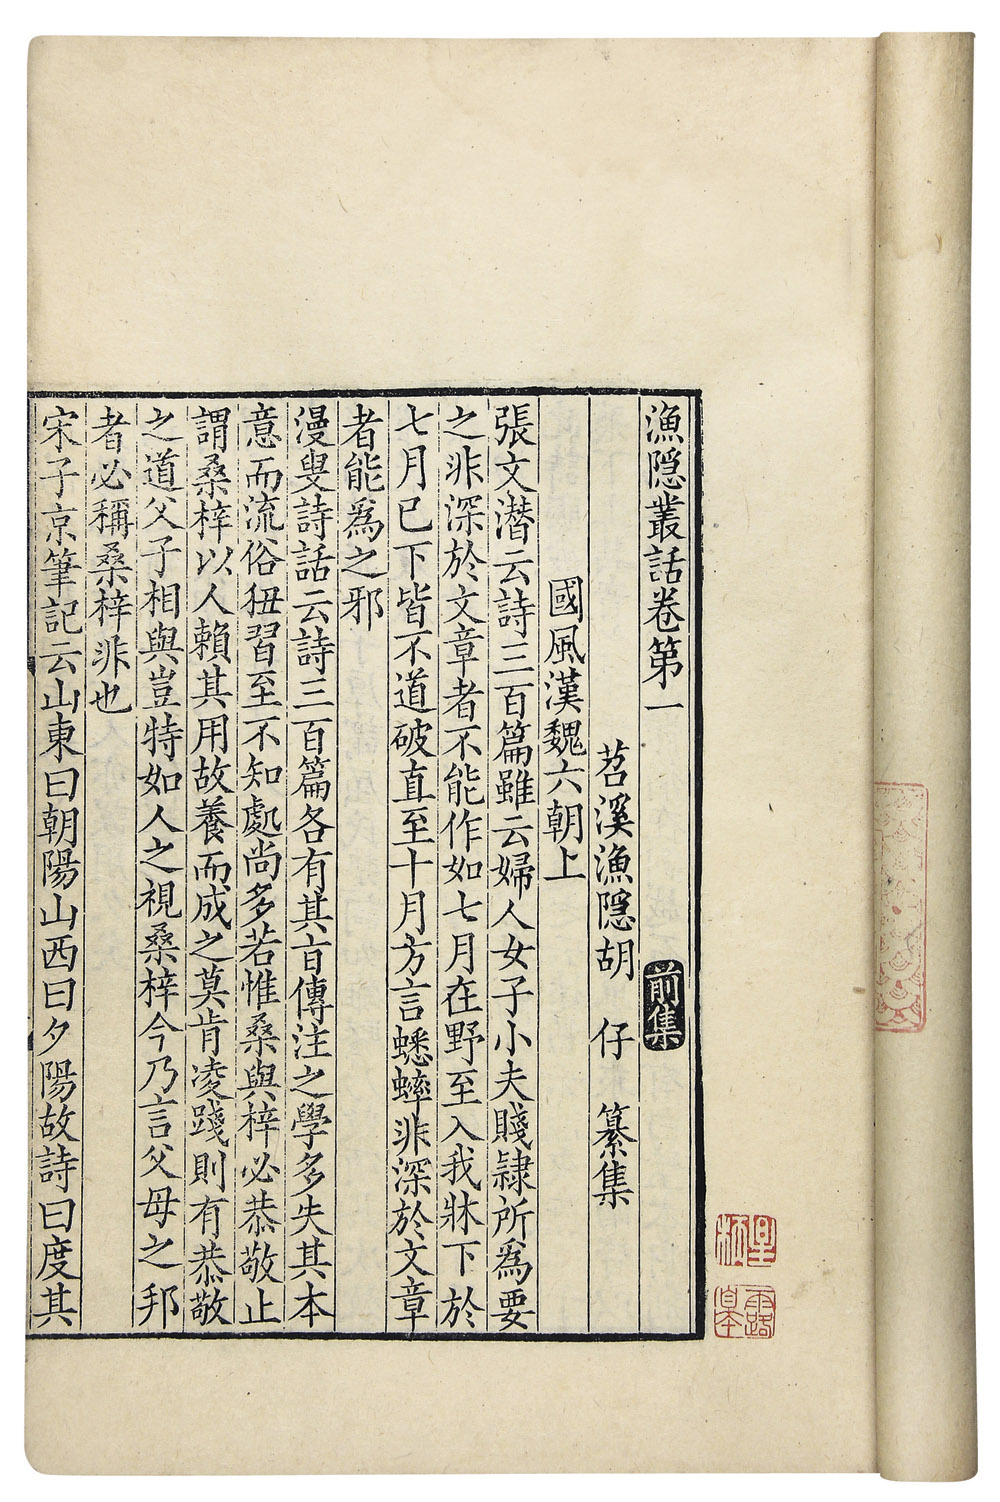 漁隱叢話卷第一 前集
苕溪漁隱胡 仔 纂集
國風漢魏六朝上
張文潛云詩三百篇雖云婦人女子小夫賤隸所爲要
之非深於文章者不能作如七月在野至入我牀下於
七月已下皆不道破直至十月方言蟋蟀非深於文章
者能爲之邪
漫叟詩話云詩三百篇各有其旨傳注之學多失其本
意而流俗狃習至不知處尚多若惟桑與梓必恭敬止
謂桑梓以人賴其用故養而成之莫肯凌踐則有恭敬
之道父子相與豈特如人之視桑梓今乃言父母之邦
者必稱桑梓非也
宋子京筆記云山東曰朝陽山西曰夕陽故詩曰度其